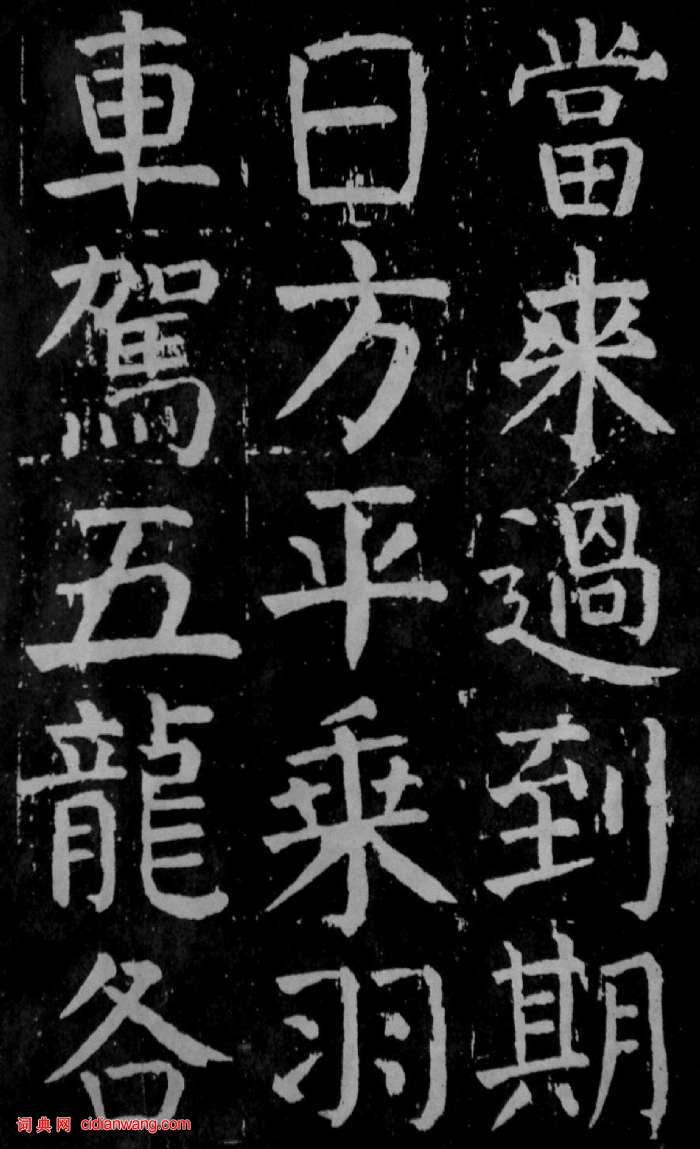 當來過到期
日方平乘羽
車駕五龍各
词典网 cidianwang.com